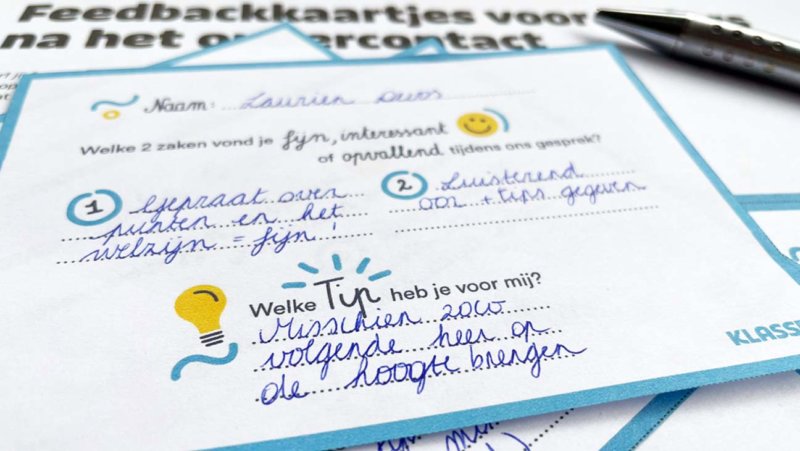 Feedbackkaartjes voor
na het oudercontact
Naam: Laurien Devos
Welke 2 zaken vond je fijn, interessant
of opvallend tijdens ons gesprek?
1 Gepraat over
punten en het
welzijn = fijn!
2 Luisterend
oor + tips gegeven
Welke Tip heb je voor mij?
Misschien zow
volgende keer op
de hoogte brengen
KLASSE